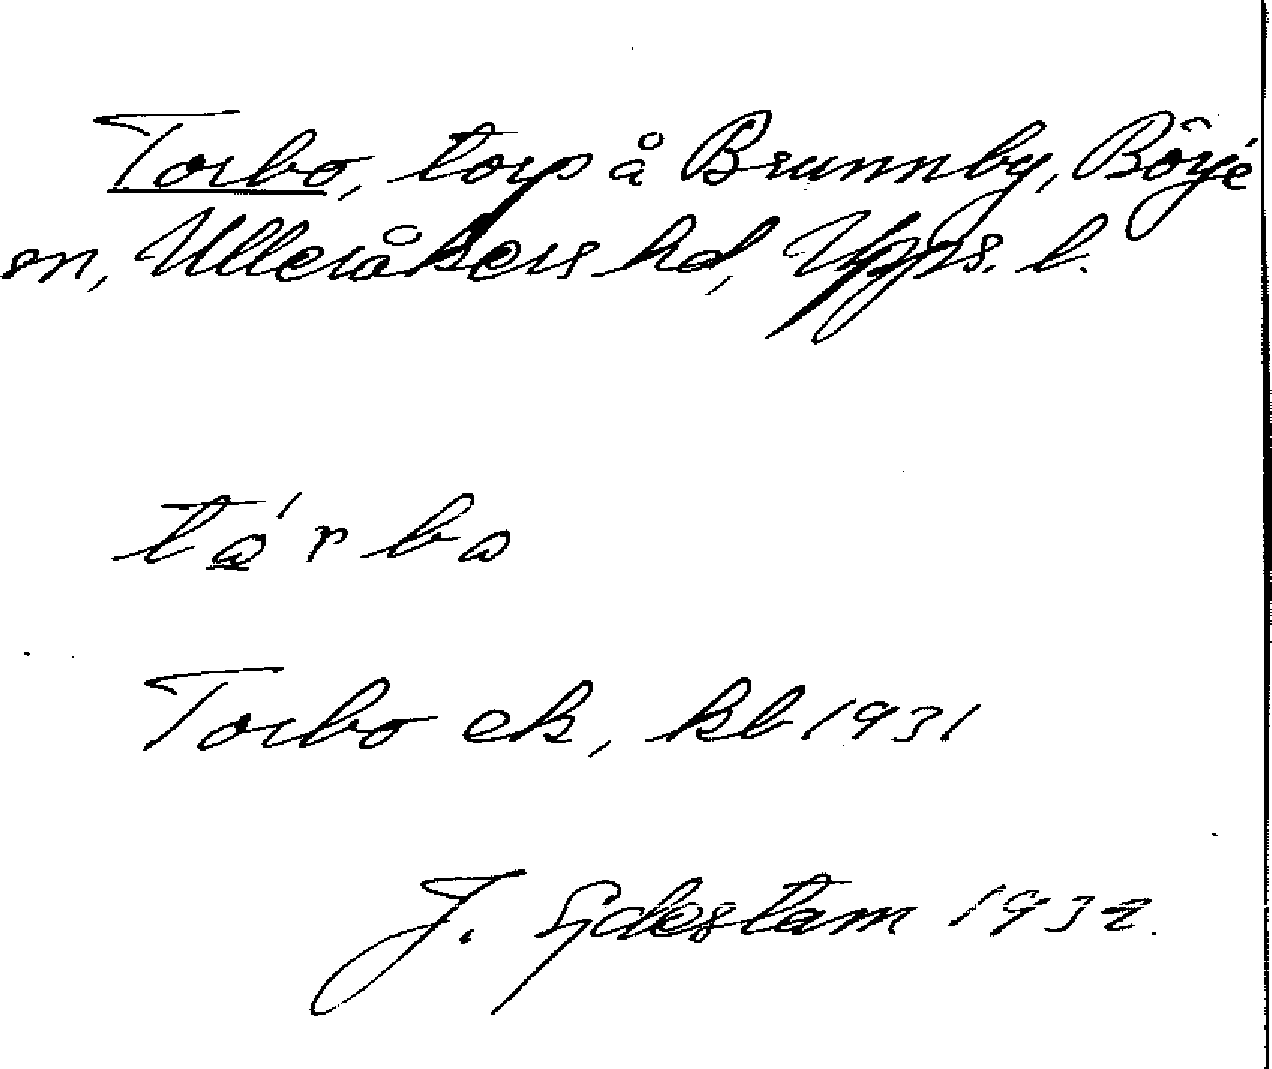 Torbo, torp å Brunnby, Börje
sn, Ulleråkers hd, Upps. l.
tạ́rbo
Torbo ek, kb 1931
J. Sjdestam 1932.